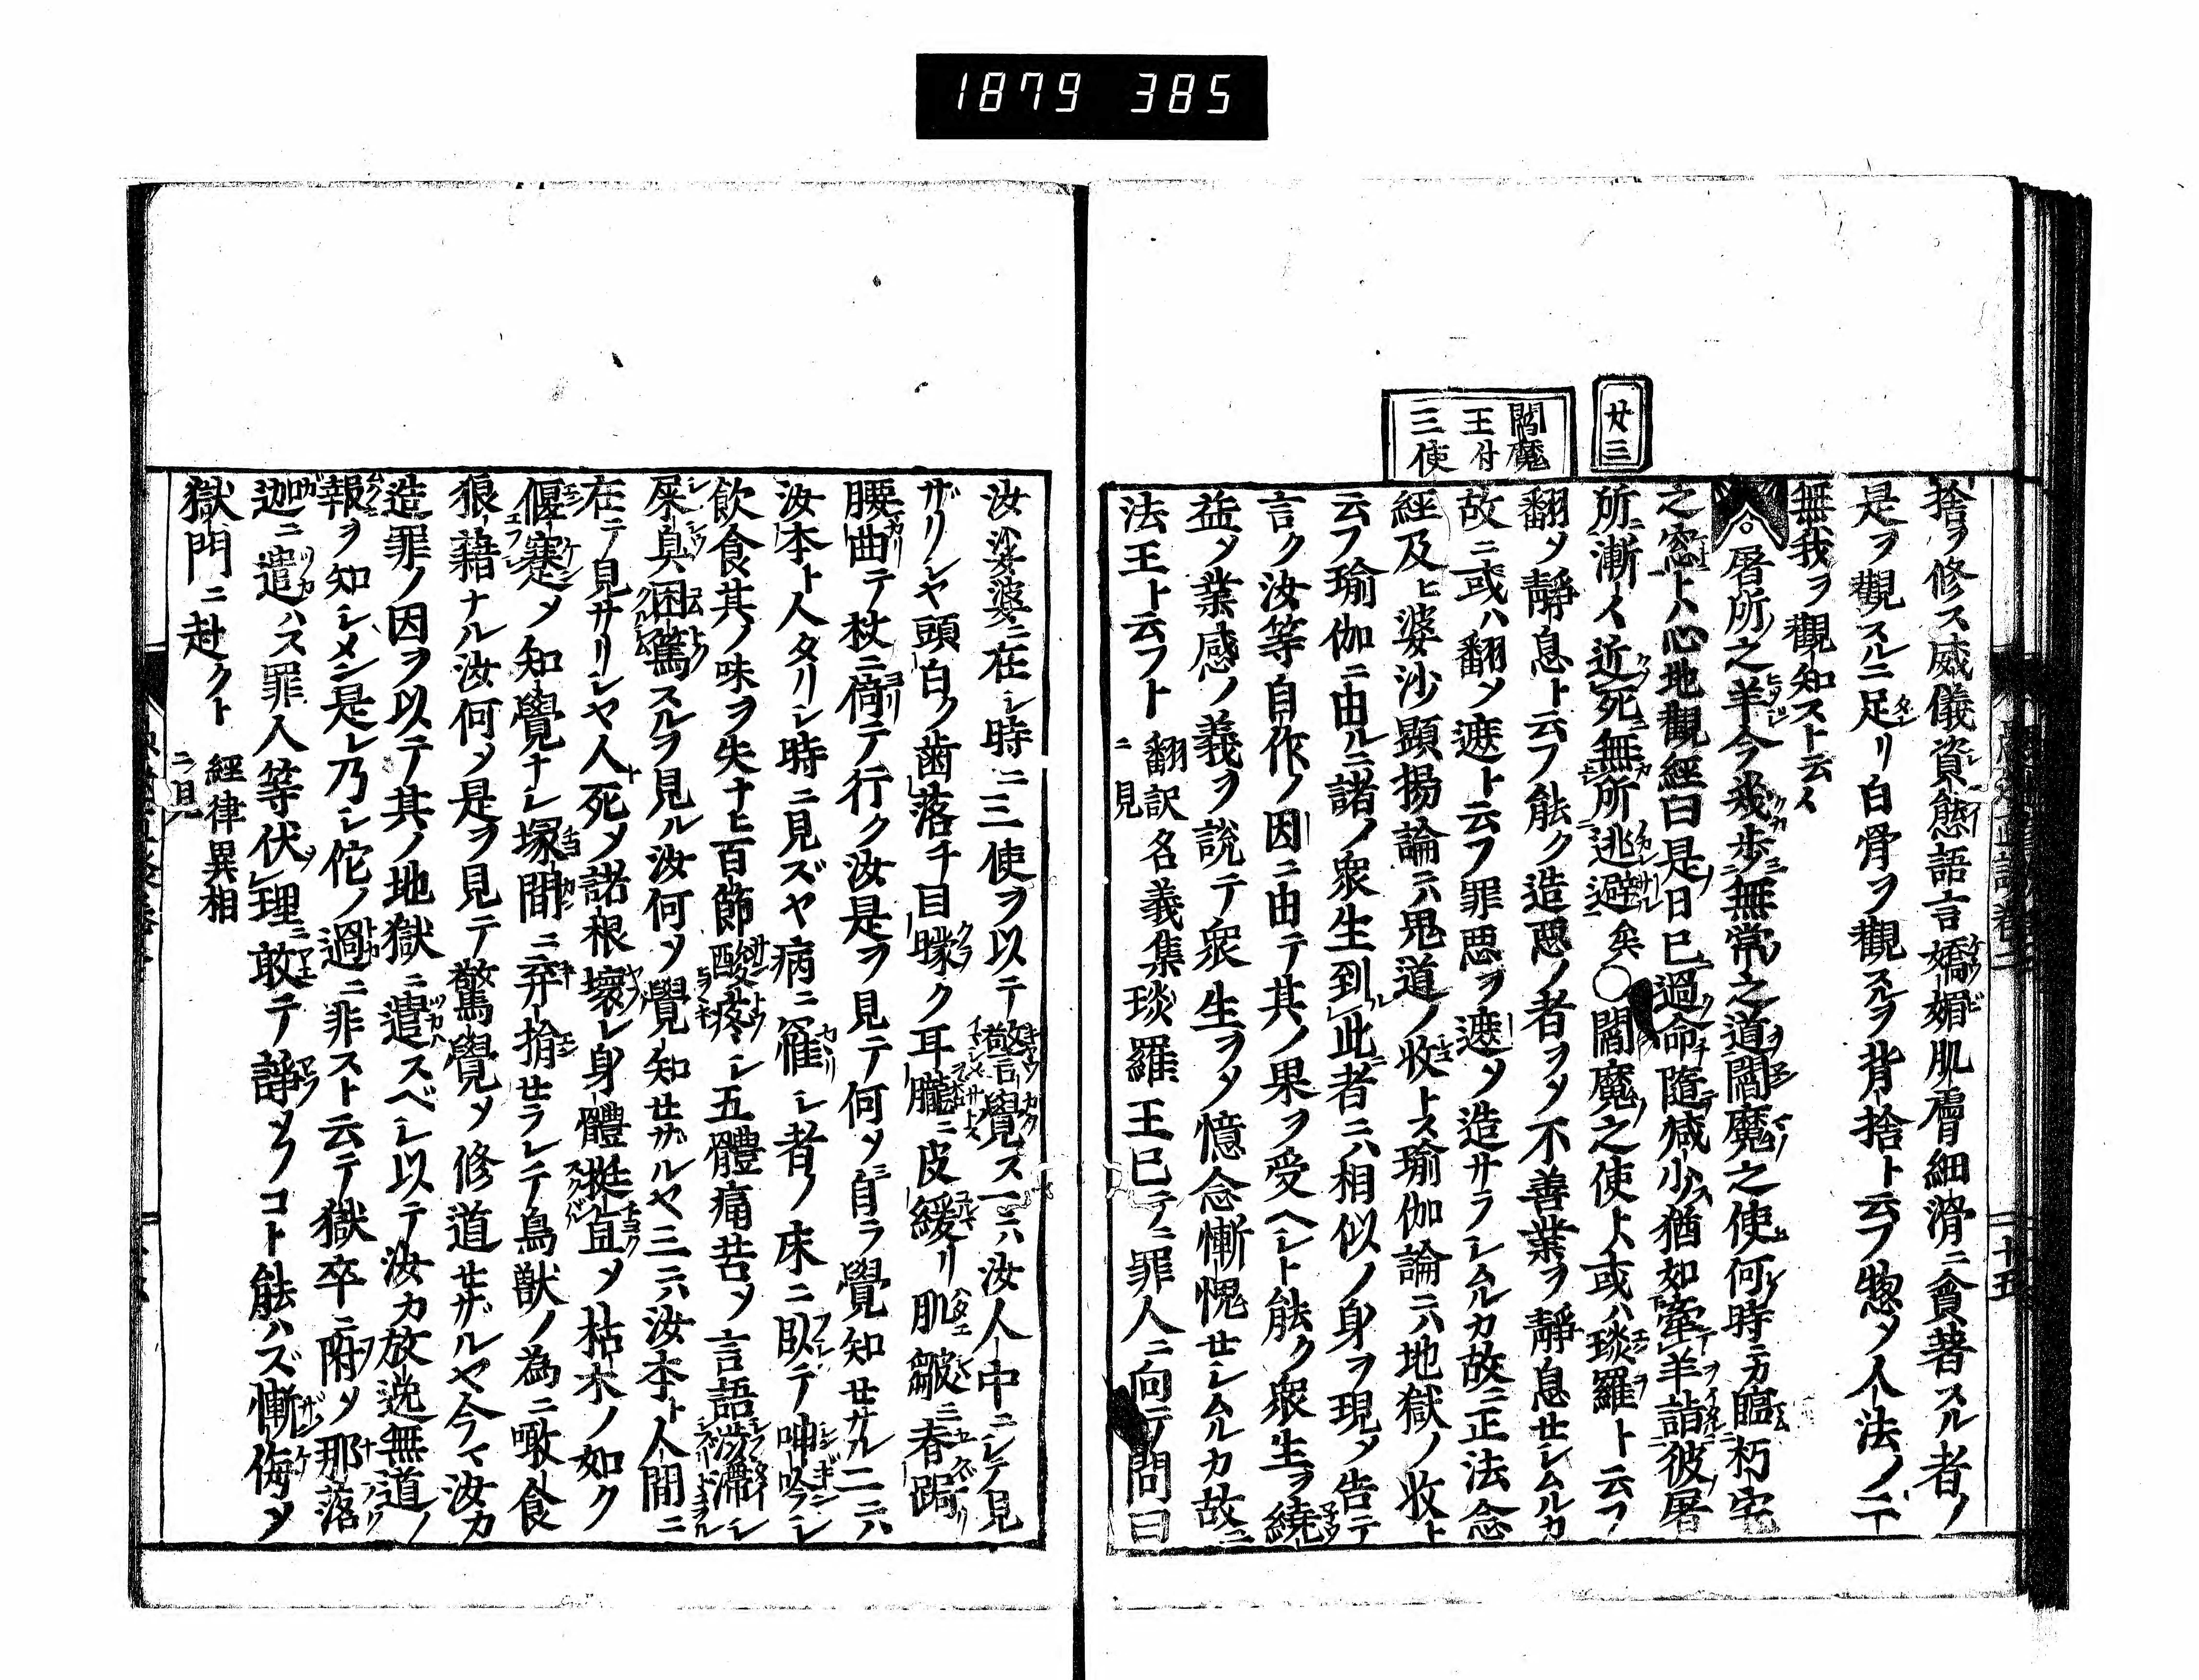 1879 385
廿三
閻魔
王付
三使
捨ヲ修ス威儀資態語言嬌媚肌膚細滑ニ貪著スル者ノ
是ヲ觀スルニ足リ白骨ヲ觀スルヲ背捨ト云フ惣メ人法ノ二
無我ヲ觀知スト云々
屠所之羊今幾歩無常之道閻魔之使何時ニカ臨朽宅
之窓トハ心地觀經曰是日已過命隨減少猶如牽羊詣彼屠
所漸々近死無所逃避矣〇閻魔之使トハ或ハ琰羅ト云フ
翻メ靜息ト云フ能ク造惡ノ者ヲメ不善業ヲ靜息せシムルカ
故ニ或ハ翻メ遮ト云フ罪惡ヲ遮メ造サラシムルカ故ニ正法念
經及ヒ婆沙顯揚論ニハ鬼道ノ收トス瑜伽論ニハ地獄ノ收ト
云フ瑜伽ニ由ルニ諸ノ衆生到此者ニハ相似ノ身ヲ現メ告テ
言ク汝等自作ノ因ニ由テ其ノ果ヲ受ヘシト能ク衆生ヲ繞
益メ業感ノ義ヲ説テ衆生ヲメ憶念慚愧せシムルカ故ニ
法王ト云フト 翻訳名義集
ニ見
琰羅王已テニ罪人ニ向テ問曰
汝娑婆ニ在シ時ニ三使ヲ以テ警覺ス一ニハ汝人中ニシテ見
ザリシヤ頭白ク歯落チ目曚ク耳朧ニ皮緩リ肌皺ニ春跼
腰曲テ杖ニ倚テ行ク汝是ヲ見テ何メ自ラ覺知せサル二ニハ
汝本ト人タリシ時ニ見ズヤ病ニ罹シ者ノ床ニ臥テ呻吟シ
飲食其ノ味ヲ失ナヒ百節酸疼シ五體痛苦メ言語澁滯シ
屎臭困篤スルヲ見ル汝何メ覺知せザルヤ三ニハ汝本ト人間ニ
在テ見サリシヤ人死メ諸根壞レ身體挺直メ枯木ノ如ク
偃蹇メ知覺ナシ塚間ニ弃捐せラレテ鳥獣ノ為ニ噉食
狼藉ナル汝何メ是ヲ見テ驚覺メ修道せザルヤ今マ汝カ
造罪ノ因ヲ以テ其ノ地獄ニ遣スベシ以テ汝カ放逸無道ノ
報ヲ知シメン是レ乃シ佗ノ過ニ非スト云テ獄卒ニ附メ那落
迦ニ遣ハス罪人等伏理敢テ諍メフコト能ハズ慚侮メ
獄門ニ赴クト 經律異相
ニ見